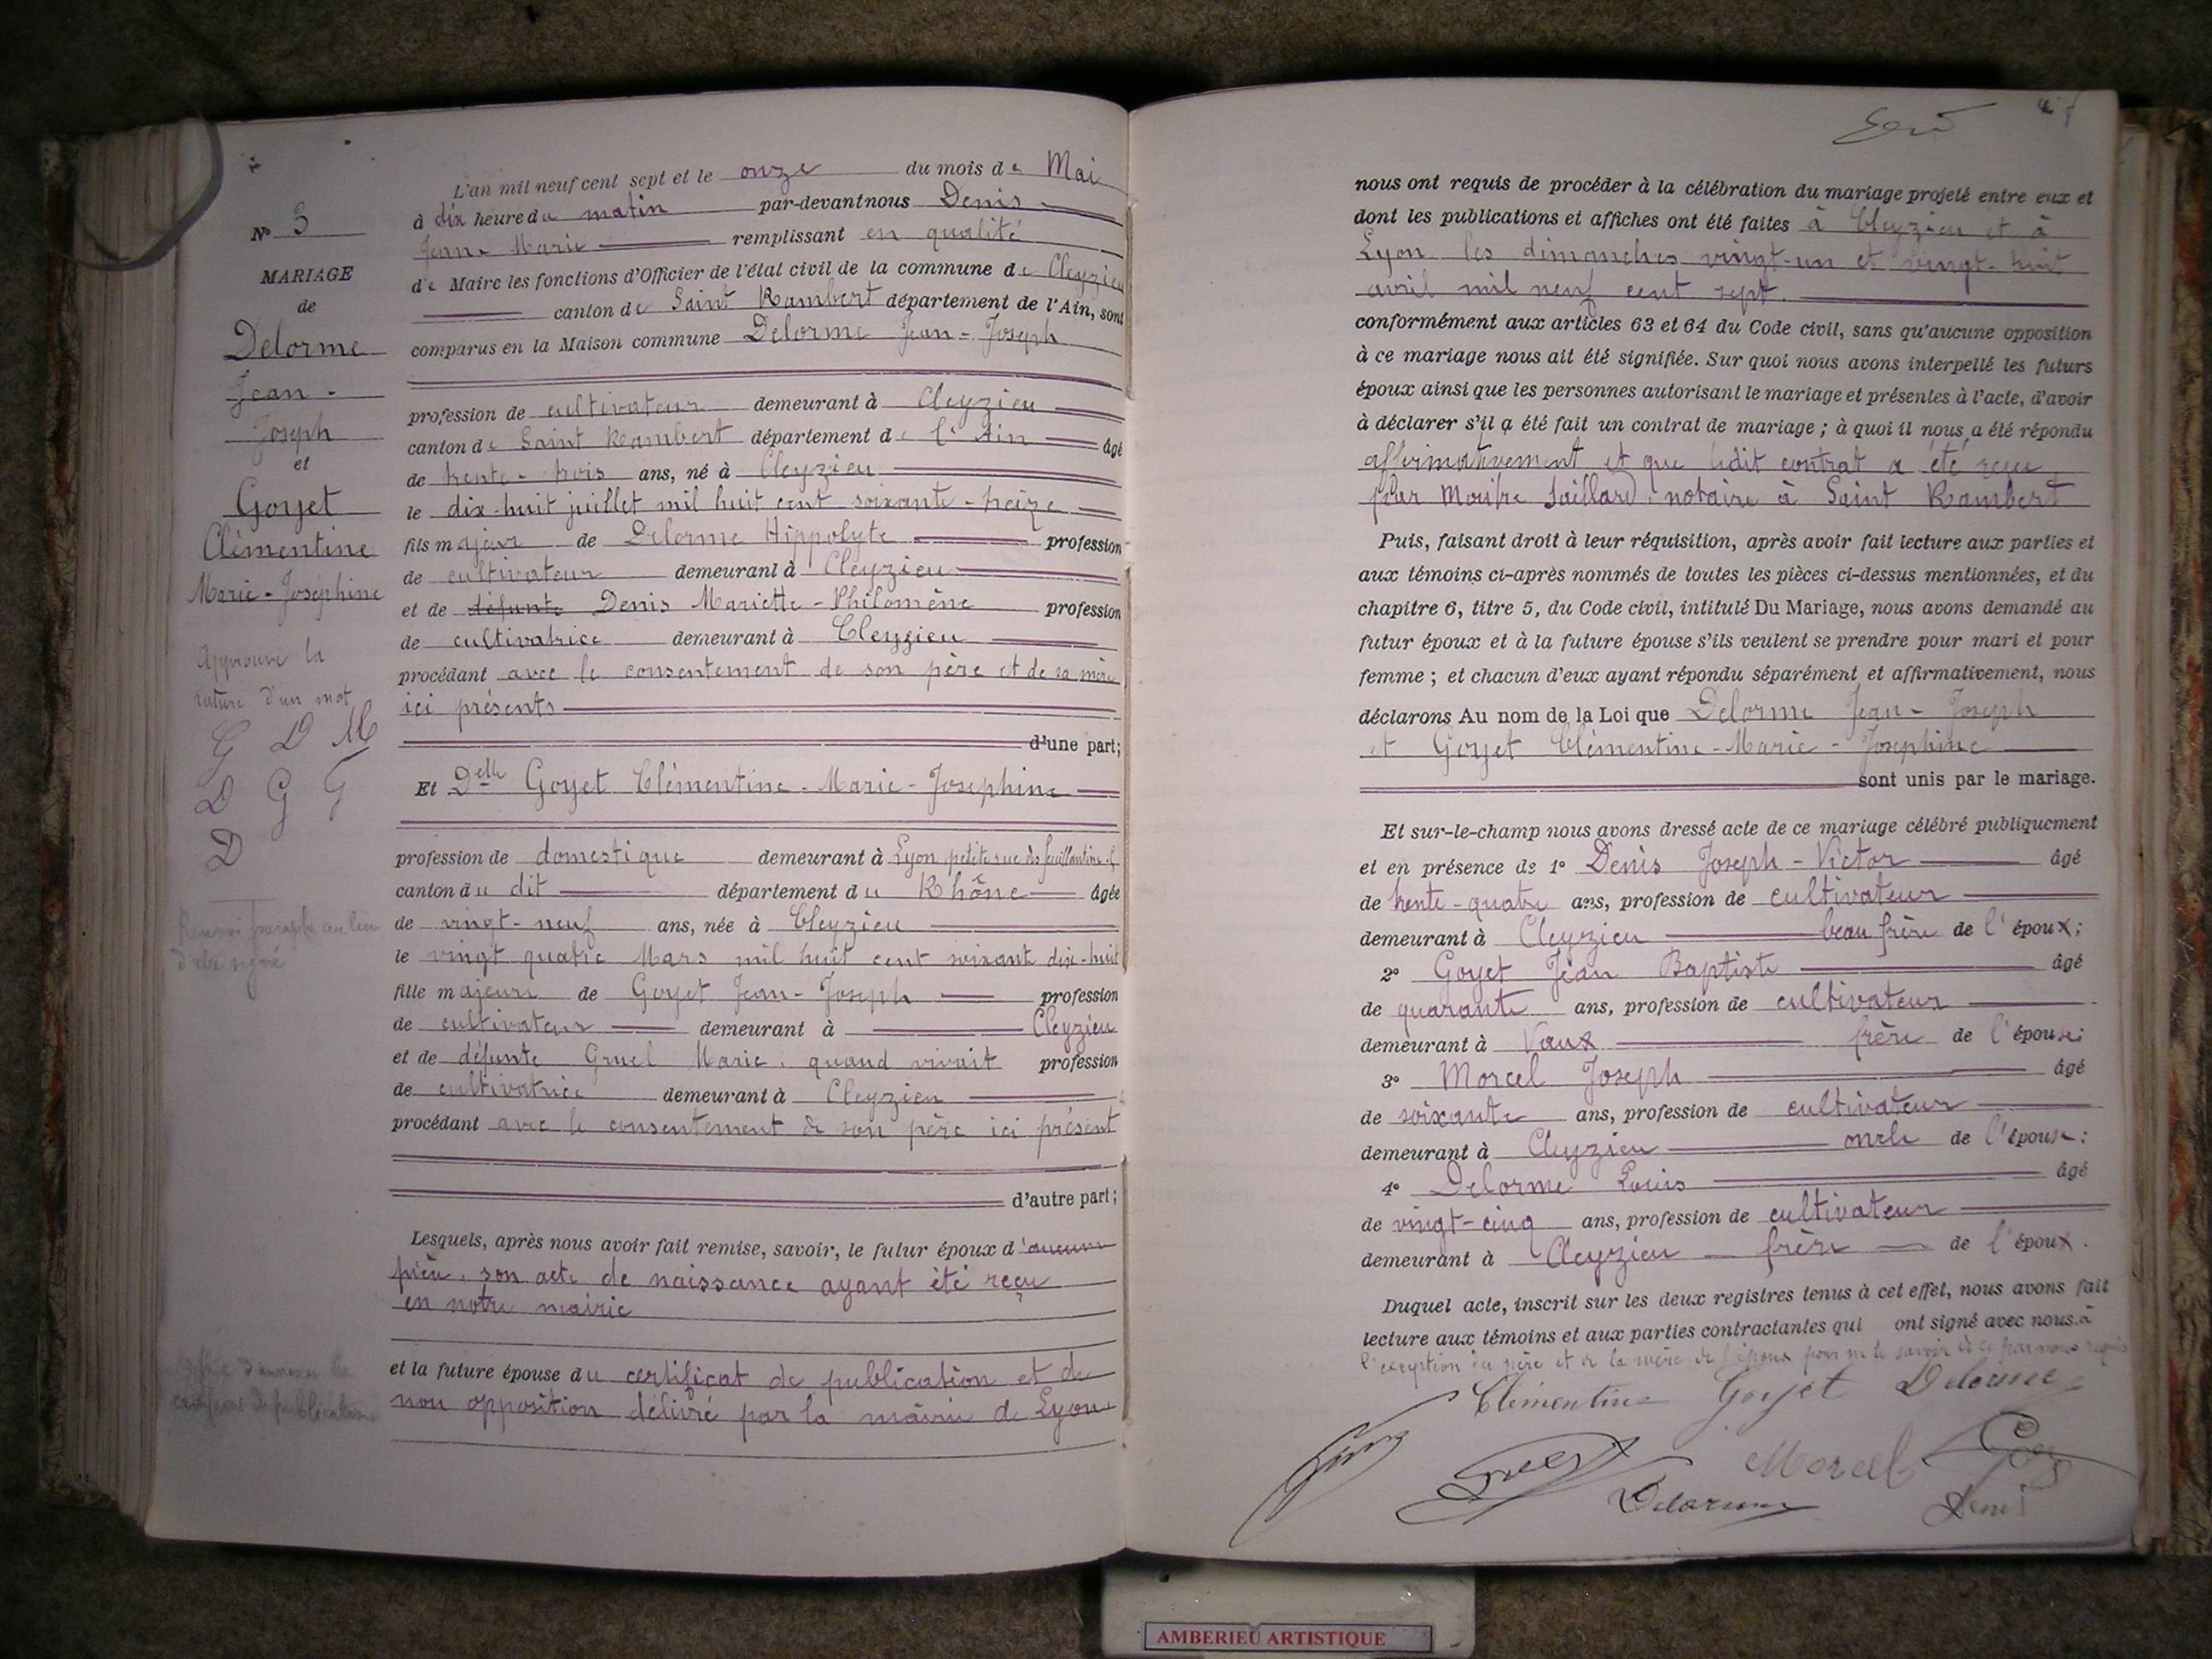 N° 3
MARIAGE
de
Delorme
Jean-
Joseph
et
Goyet
Clémentine
Marie-Joséphine
Approuvé la
rature d'un mot
G D M
D G G
D
Renvoi paraphé au lieu
d'être signé
certificat de publication
L'an mil neuf cent sept et le onze du mois de Mai
à dix heure du matin par-devant nous Denis
Jean-Marie remplissant en qualité
de Maire les fonctions d'Officier de l'état civil de la commune de Cleyzieu
canton de Saint Rambert département de l'Ain, sont
comparus en la Maison commune Delorme Jean-Joseph
profession de cultivateur demeurant à Cleyzieu
canton de Saint Rambert département de l'Ain âgé
de trente-trois ans, né à Cleyzieu
le dix-huit juillet mil huit cent soixante-treize
fils majeur de Delorme Hippolyte profession
de cultivateur demeurant à Cleyzieu
et de défunte Denis Mariette-Philomène profession
de cultivatrice demeurant à Cleyzieu
procédant avec le consentement de son père et de sa mère
ici présents
d'une part;
Et Delle Goyet Clémentine-Marie-Josephine
profession de domestique demeurant à Lyon petite rue des feuillantines
canton du dit département du Rhône âgée
de vingt-neuf ans, née à Cleyzieu
le vingt quatre Mars mil huit cent soixante dix-huit
fille majeure de Goyet Jean-Joseph profession
de cultivateur demeurant à Cleyzieu
et de défunte Gruel Marie, quand vivait profession
de cultivatrice demeurant à Cleyzieu
procédant avec le consentement de son père ici présent
d'autre part;
Lesquels, après nous avoir fait remise, savoir, le futur époux d'aucune
pièce, son acte de naissance ayant été reçu
en notre mairie
et la future épouse du certificat de publication et de
non opposition délivré par la mairie de Lyon
nous ont requis de procéder à la célébration du mariage projeté entre eux et
dont les publications et affiches ont été faites à Cleyzieu et à
Lyon les dimanches vingt-un et vingt-huit
avril mil neuf cent sept.
conformément aux articles 63 et 64 du Code civil, sans qu'aucune opposition
à ce mariage nous ait été signifiée. Sur quoi nous avons interpellé les futurs
époux ainsi que les personnes autorisant le mariage et présentes à l'acte, d'avoir
à déclarer s'il a été fait un contrat de mariage; à quoi il nous a été répondu
affirmativement et que ledit contrat a été reçu
par Maitre Saillard, notaire à Saint Rambert
Puis, faisant droit à leur réquisition, après avoir fait lecture aux parties et
aux témoins ci-après nommés de toutes les pièces ci-dessus mentionnées, et du
chapitre 6, titre 5, du Code civil, intitulé Du Mariage, nous avons demandé au
futur époux et à la future épouse s'ils veulent se prendre pour mari et pour
femme; et chacun d'eux ayant répondu séparément et affirmativement, nous
déclarons Au nom de la Loi que Delorme Jean-Joseph
et Goyet Clémentine-Marie-Josephine
sont unis par le mariage.
Et sur-le-champ nous avons dressé acte de ce mariage célébré publiquement
et en présence de 1° Denis Joseph-Victor âgé
de trente-quatre ans, profession de cultivateur
demeurant à Cleyzieu beau frère de l'époux;
2° Goyet Jean Baptiste âgé
de quarante ans, profession de cultivateur
demeurant à Vaux frère de l'épouse;
3° Morcel Joseph âgé
de soixante ans, profession de cultivateur
demeurant à Cleyzieu oncle de l'épouse;
4° Delorme Louis âgé
de vingt-cinq ans, profession de cultivateur
demeurant à Cleyzieu frère de l'époux.
Duquel acte, inscrit sur les deux registres tenus à cet effet, nous avons fait
lecture aux témoins et aux parties contractantes qui ont signé avec nous à
l'exception du père et de la mère de l'époux pour ne le savoir de ce par nous requis
Clémentine Goyet Delorme
Goyet Morcel
Delorme Denis
AMBERIEU ARTISTIQUE